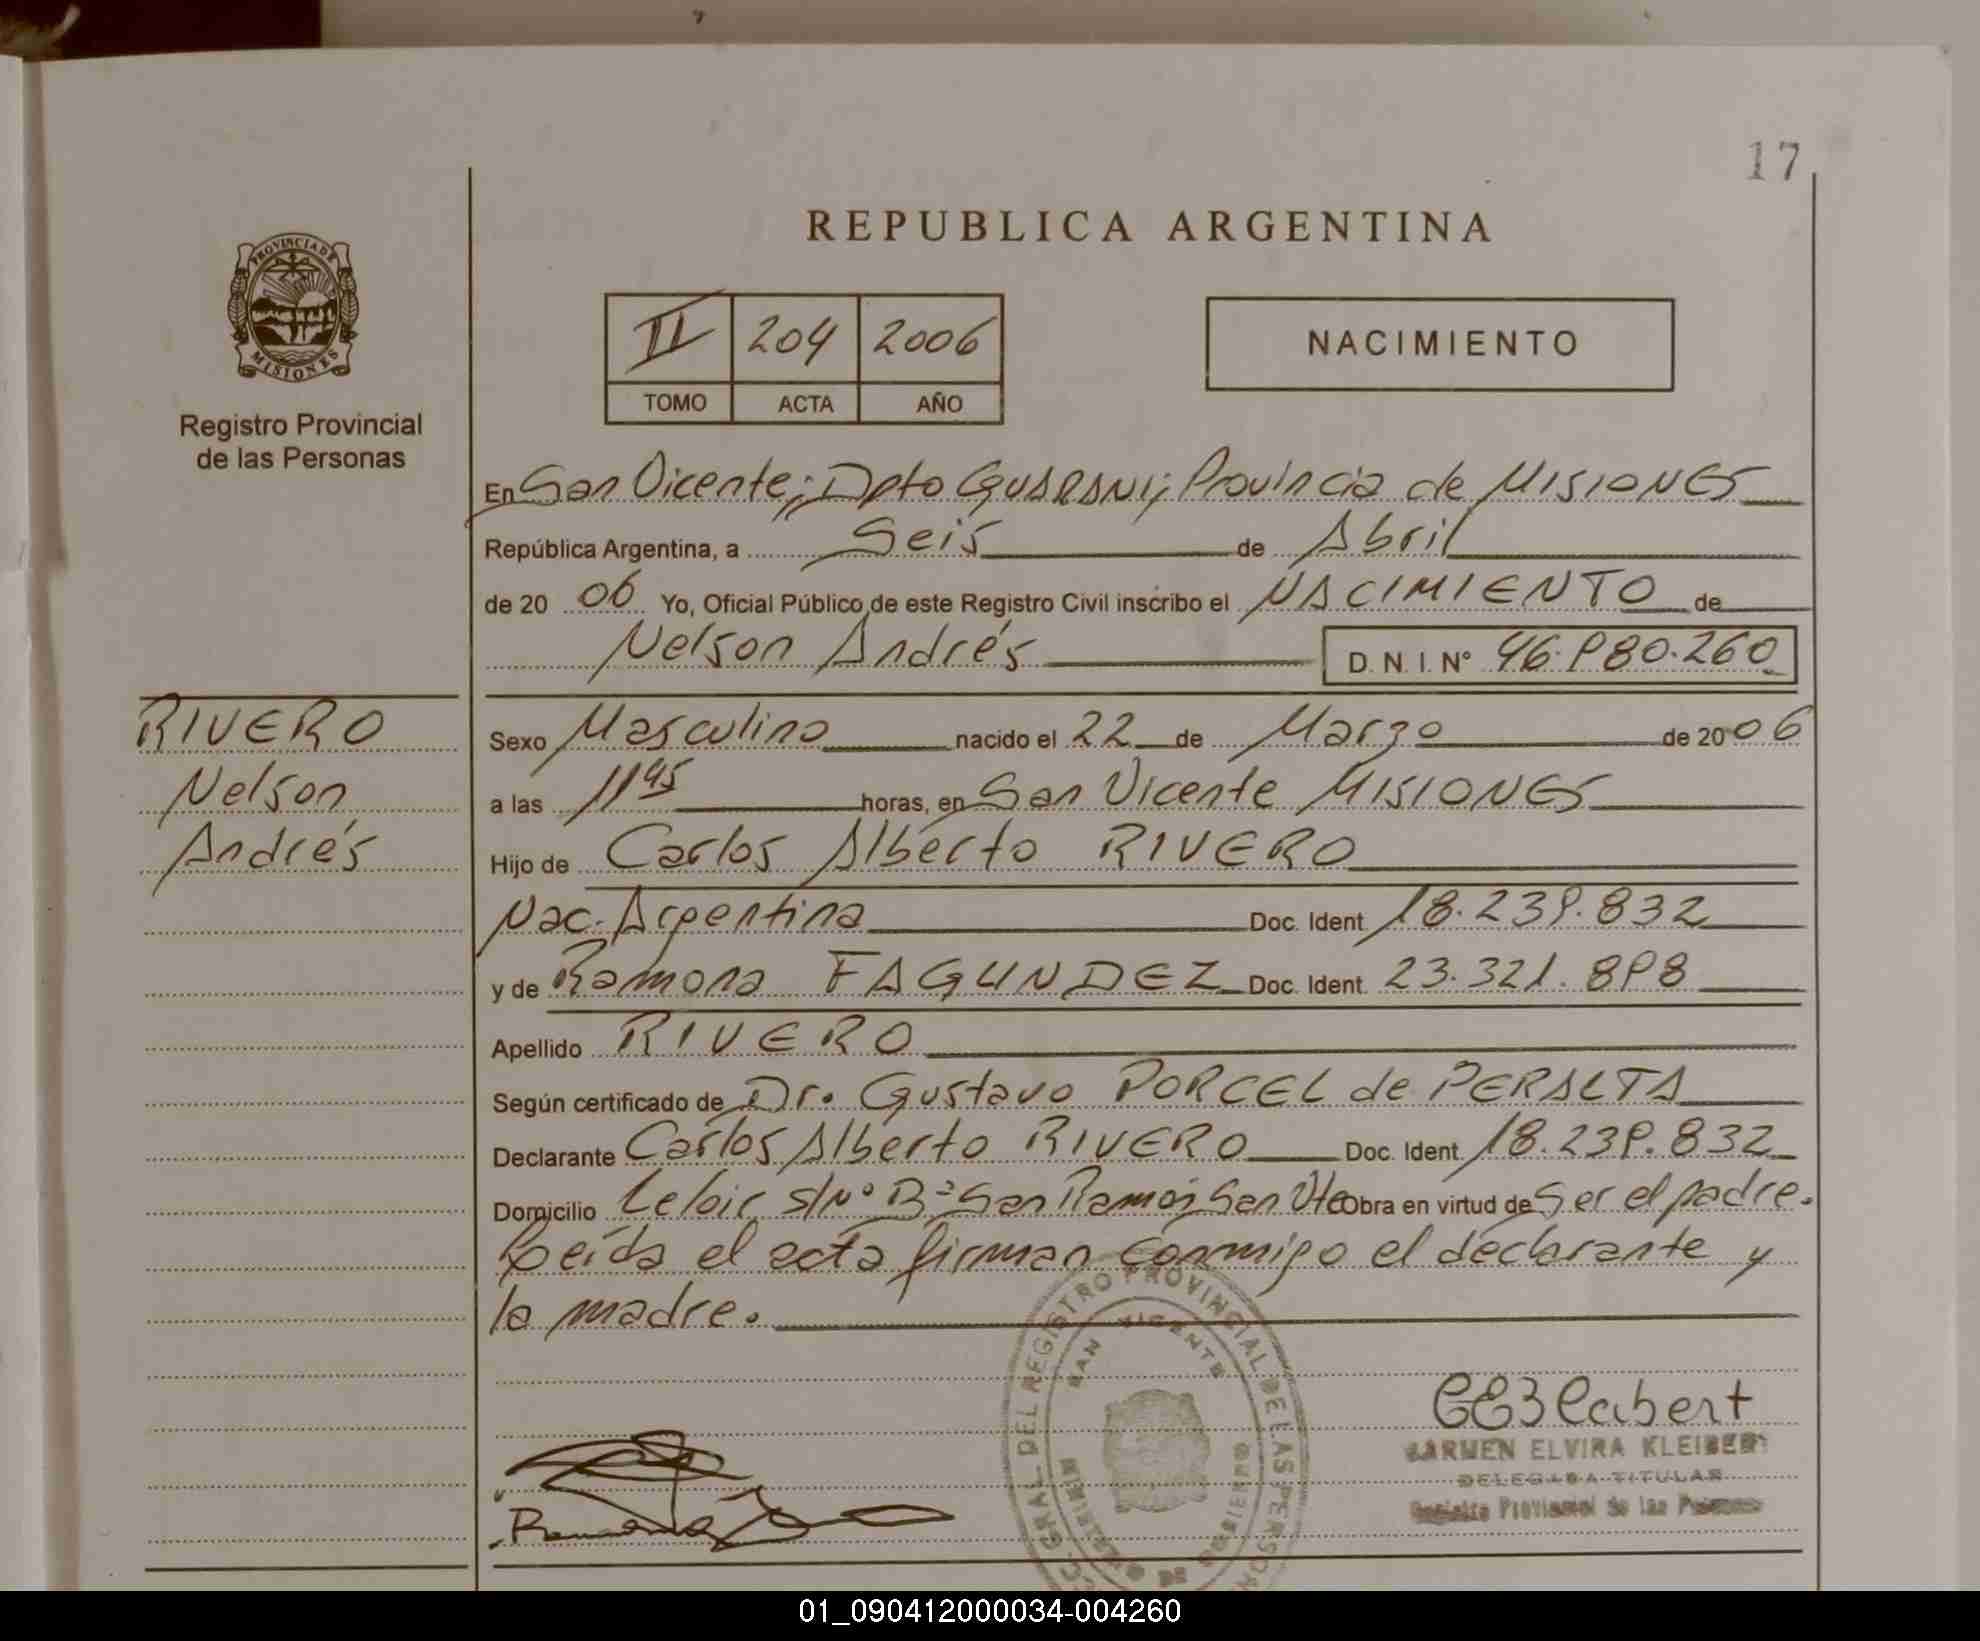 17
REPUBLICA ARGENTINA
PROVINCIA DE
MISIONES
Registro Provincial
de las Personas
II 204 2006
TOMO ACTA AÑO
NACIMIENTO
En San Vicente; Dpto GUARANI; Provincia de MISIONES
República Argentina, a Seis de Abril
de 20 06 Yo, Oficial Público de este Registro Civil inscribo el NACIMIENTO de
Nelson Andrés D.N.I. N° 46.980.260
RIVERO
Nelson
Andrés
Sexo Masculino nacido el 22 de Marzo de 20 06
a las 11 45 horas, en San Vicente MISIONES
Hijo de Carlos Alberto RIVERO
Nac. Argentina Doc. Ident. 18.239.832
y de Ramona FAGUNDEZ Doc. Ident. 23.321.898
Apellido RIVERO
Según certificado de Dr. Gustavo PORCEL de PERALTA
Declarante Carlos Alberto RIVERO Doc. Ident. 18.239.832
Domicilio Leloir s/N° B° San Ramón San Vte Obra en virtud de Ser el padre.
Leída el acta firman conmigo el declarante y
la madre.
GRAL. DEL REGISTRO PROVINCIAL DE LAS PERSONAS
SAN VICENTE
Ramona
CARMEN ELVIRA KLEIBERT
DELEGADA TITULAR
Registro Provincial de las Personas
01_090412000034-004260